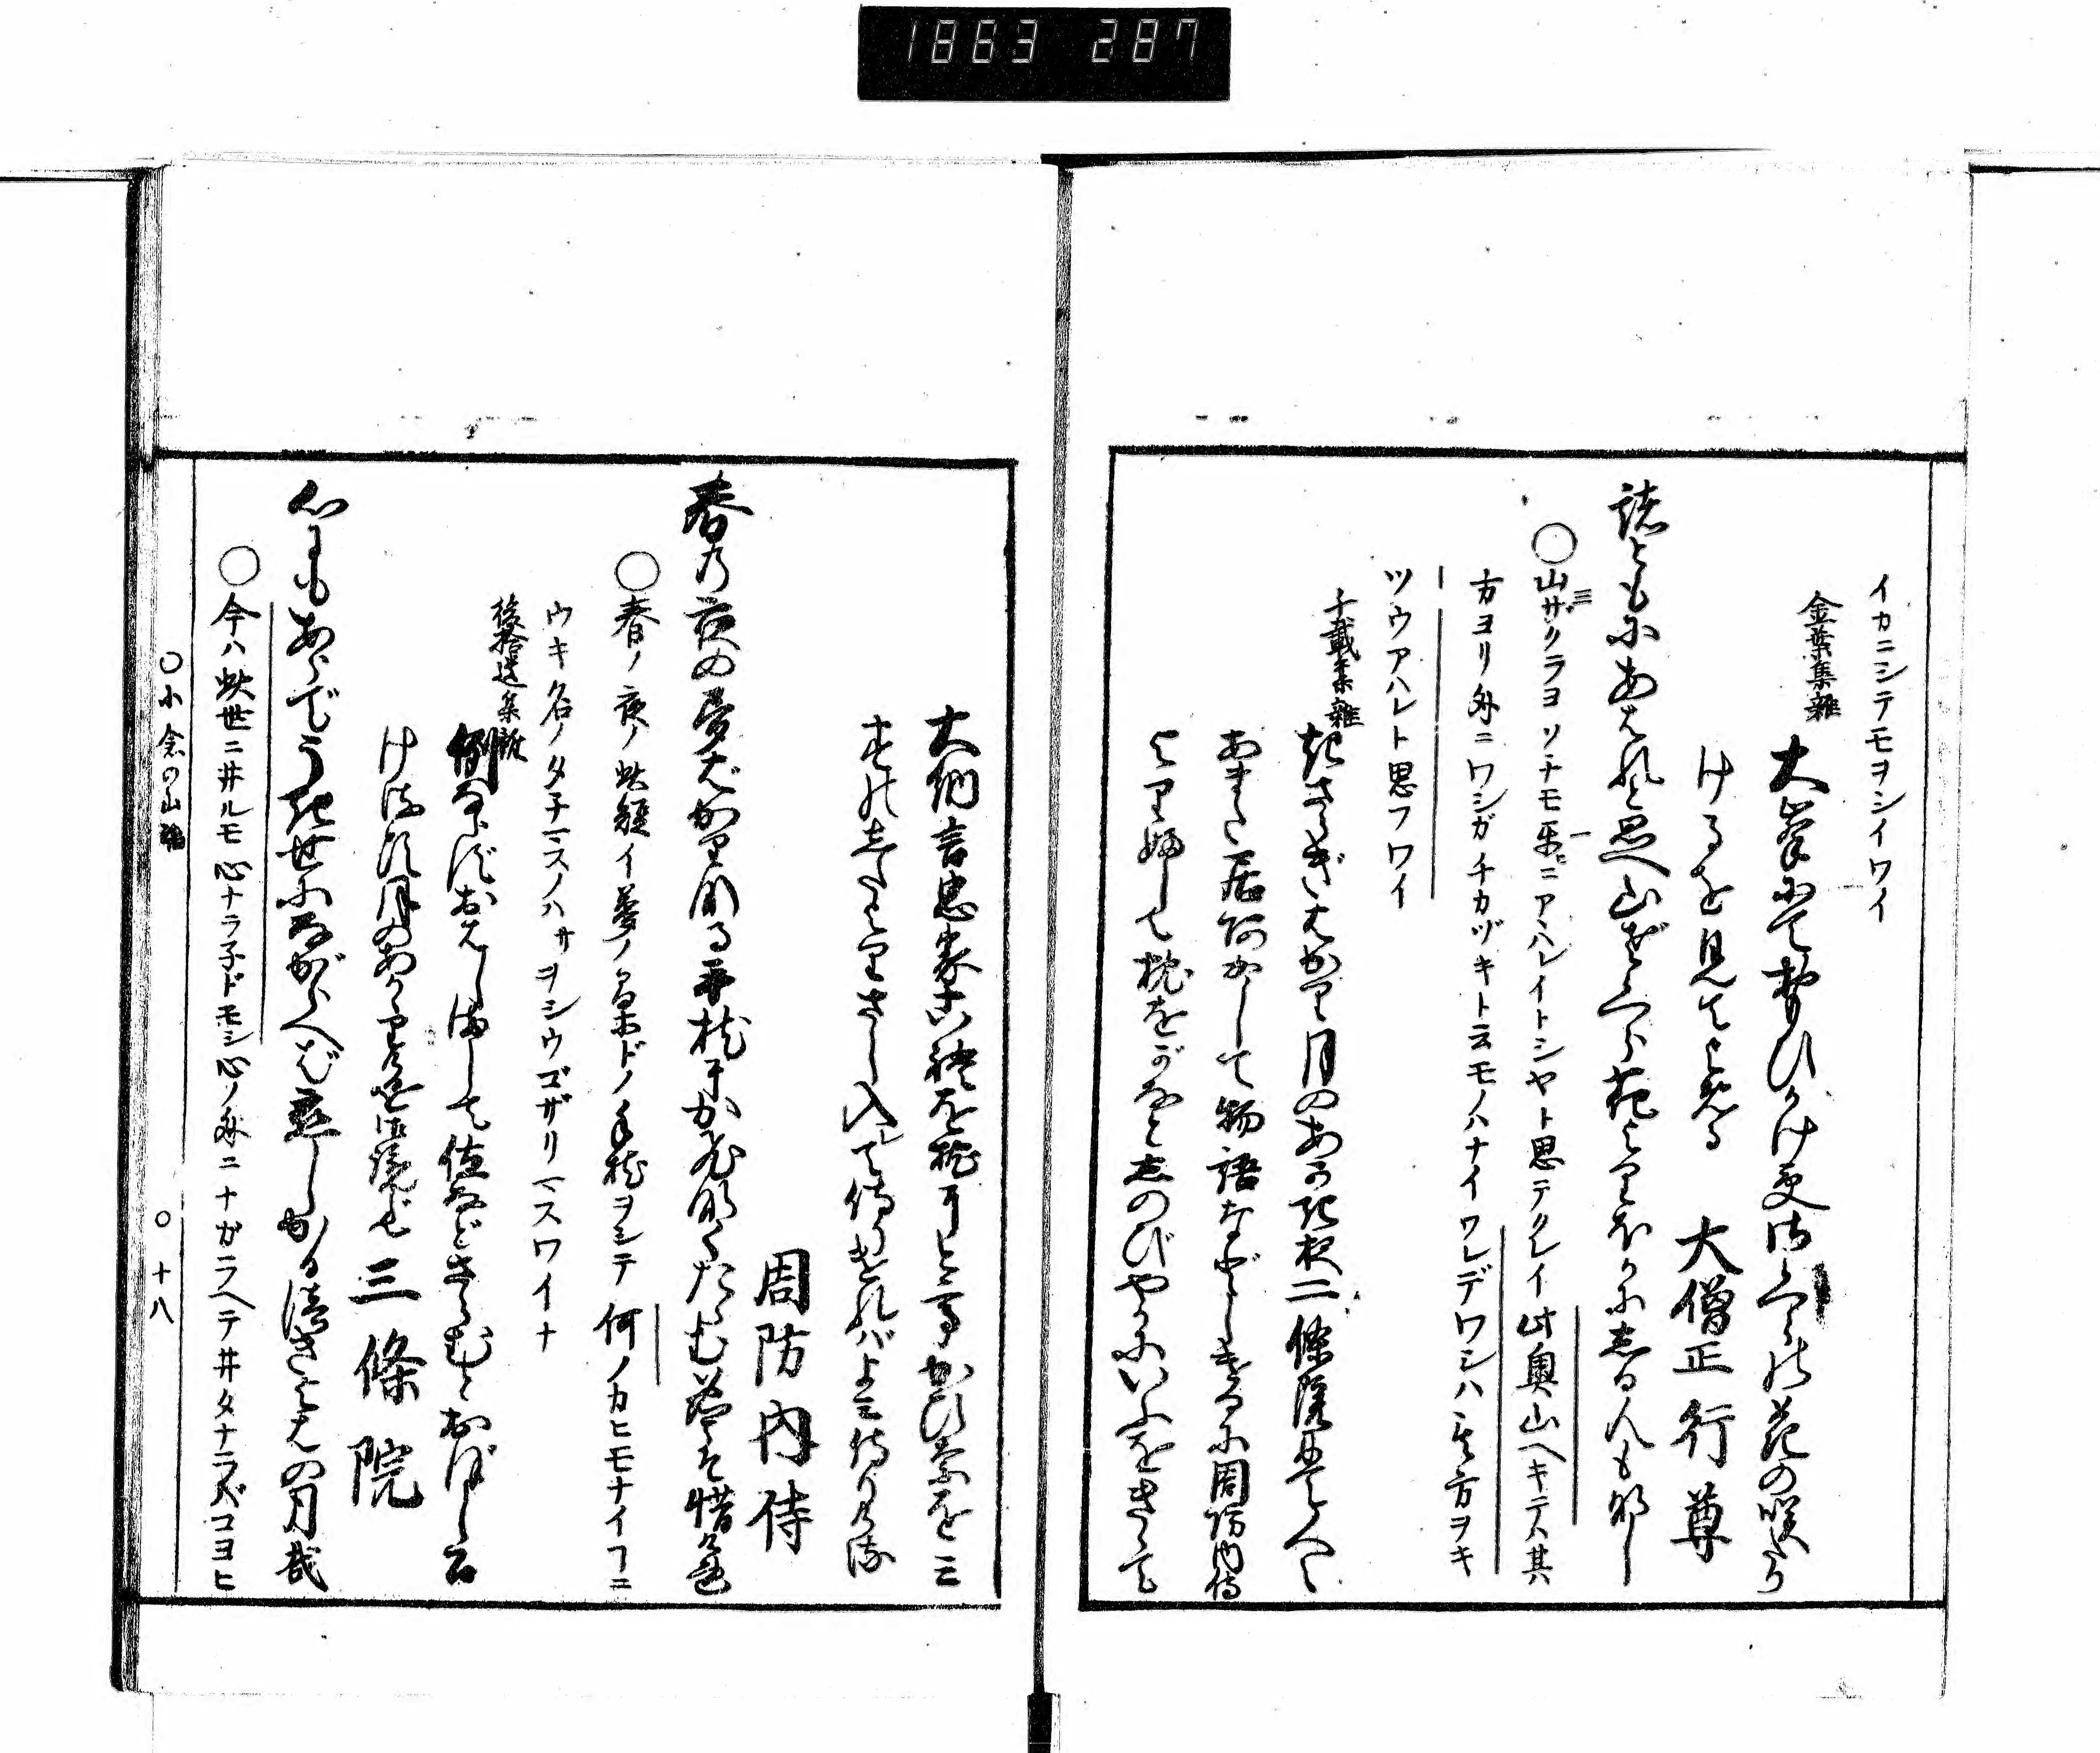 1863 287
イカニシテモヲシイワイ
金葉集雜
大峯にて思ひがけずさくらの花の咲たり
けるを見てよめる 大僧正行尊
諸ともにあはれと思へ山ざくら花よりほかにしる人も那し
○山ザクラヨソナモ一乐ニアハレイトシヤト思テクレイ此奥山ヘキテハ其
方ヨリ外ニワシガチカヅキト云モノハナイワレデワシハ其方ヲキ
ツウアハレト思フワイ
千載集雜
起さらぎはかり月のあかき夜二條院にて人々
あまた居あかして物語などしけるに周防内侍
よりふして枕をがなとしのびやかにいふをきゝて
大納言忠家は是を枕にとて、かひなを三
すの志たよりさし入て侍りければよみ侍りける
周防内侍
春乃夜の夢ばかりなる手枕にかひなくたゝむ名こそ惜けれ
○春ノ夜ノ此短イ夢ノ名ホドノ手枕ヲシテ何ノカヒモナイコニ
ウキ名ノタチマスノハサヲシウゴザリマスワイナ
後拾遺集雜
例ならずおはしまして位などさらむとおぼしめ
ける頃月のあかゝりけるを御覧じて 三條院
心にもあらでうき世にながらへば恋しかるべき夜はの月哉
○今ハ此世ニ井ルモ心ナラ子ドモシ心ノ外ニナガラヘテ井タナラバコヨヒ
○小倉の山踏
○十八